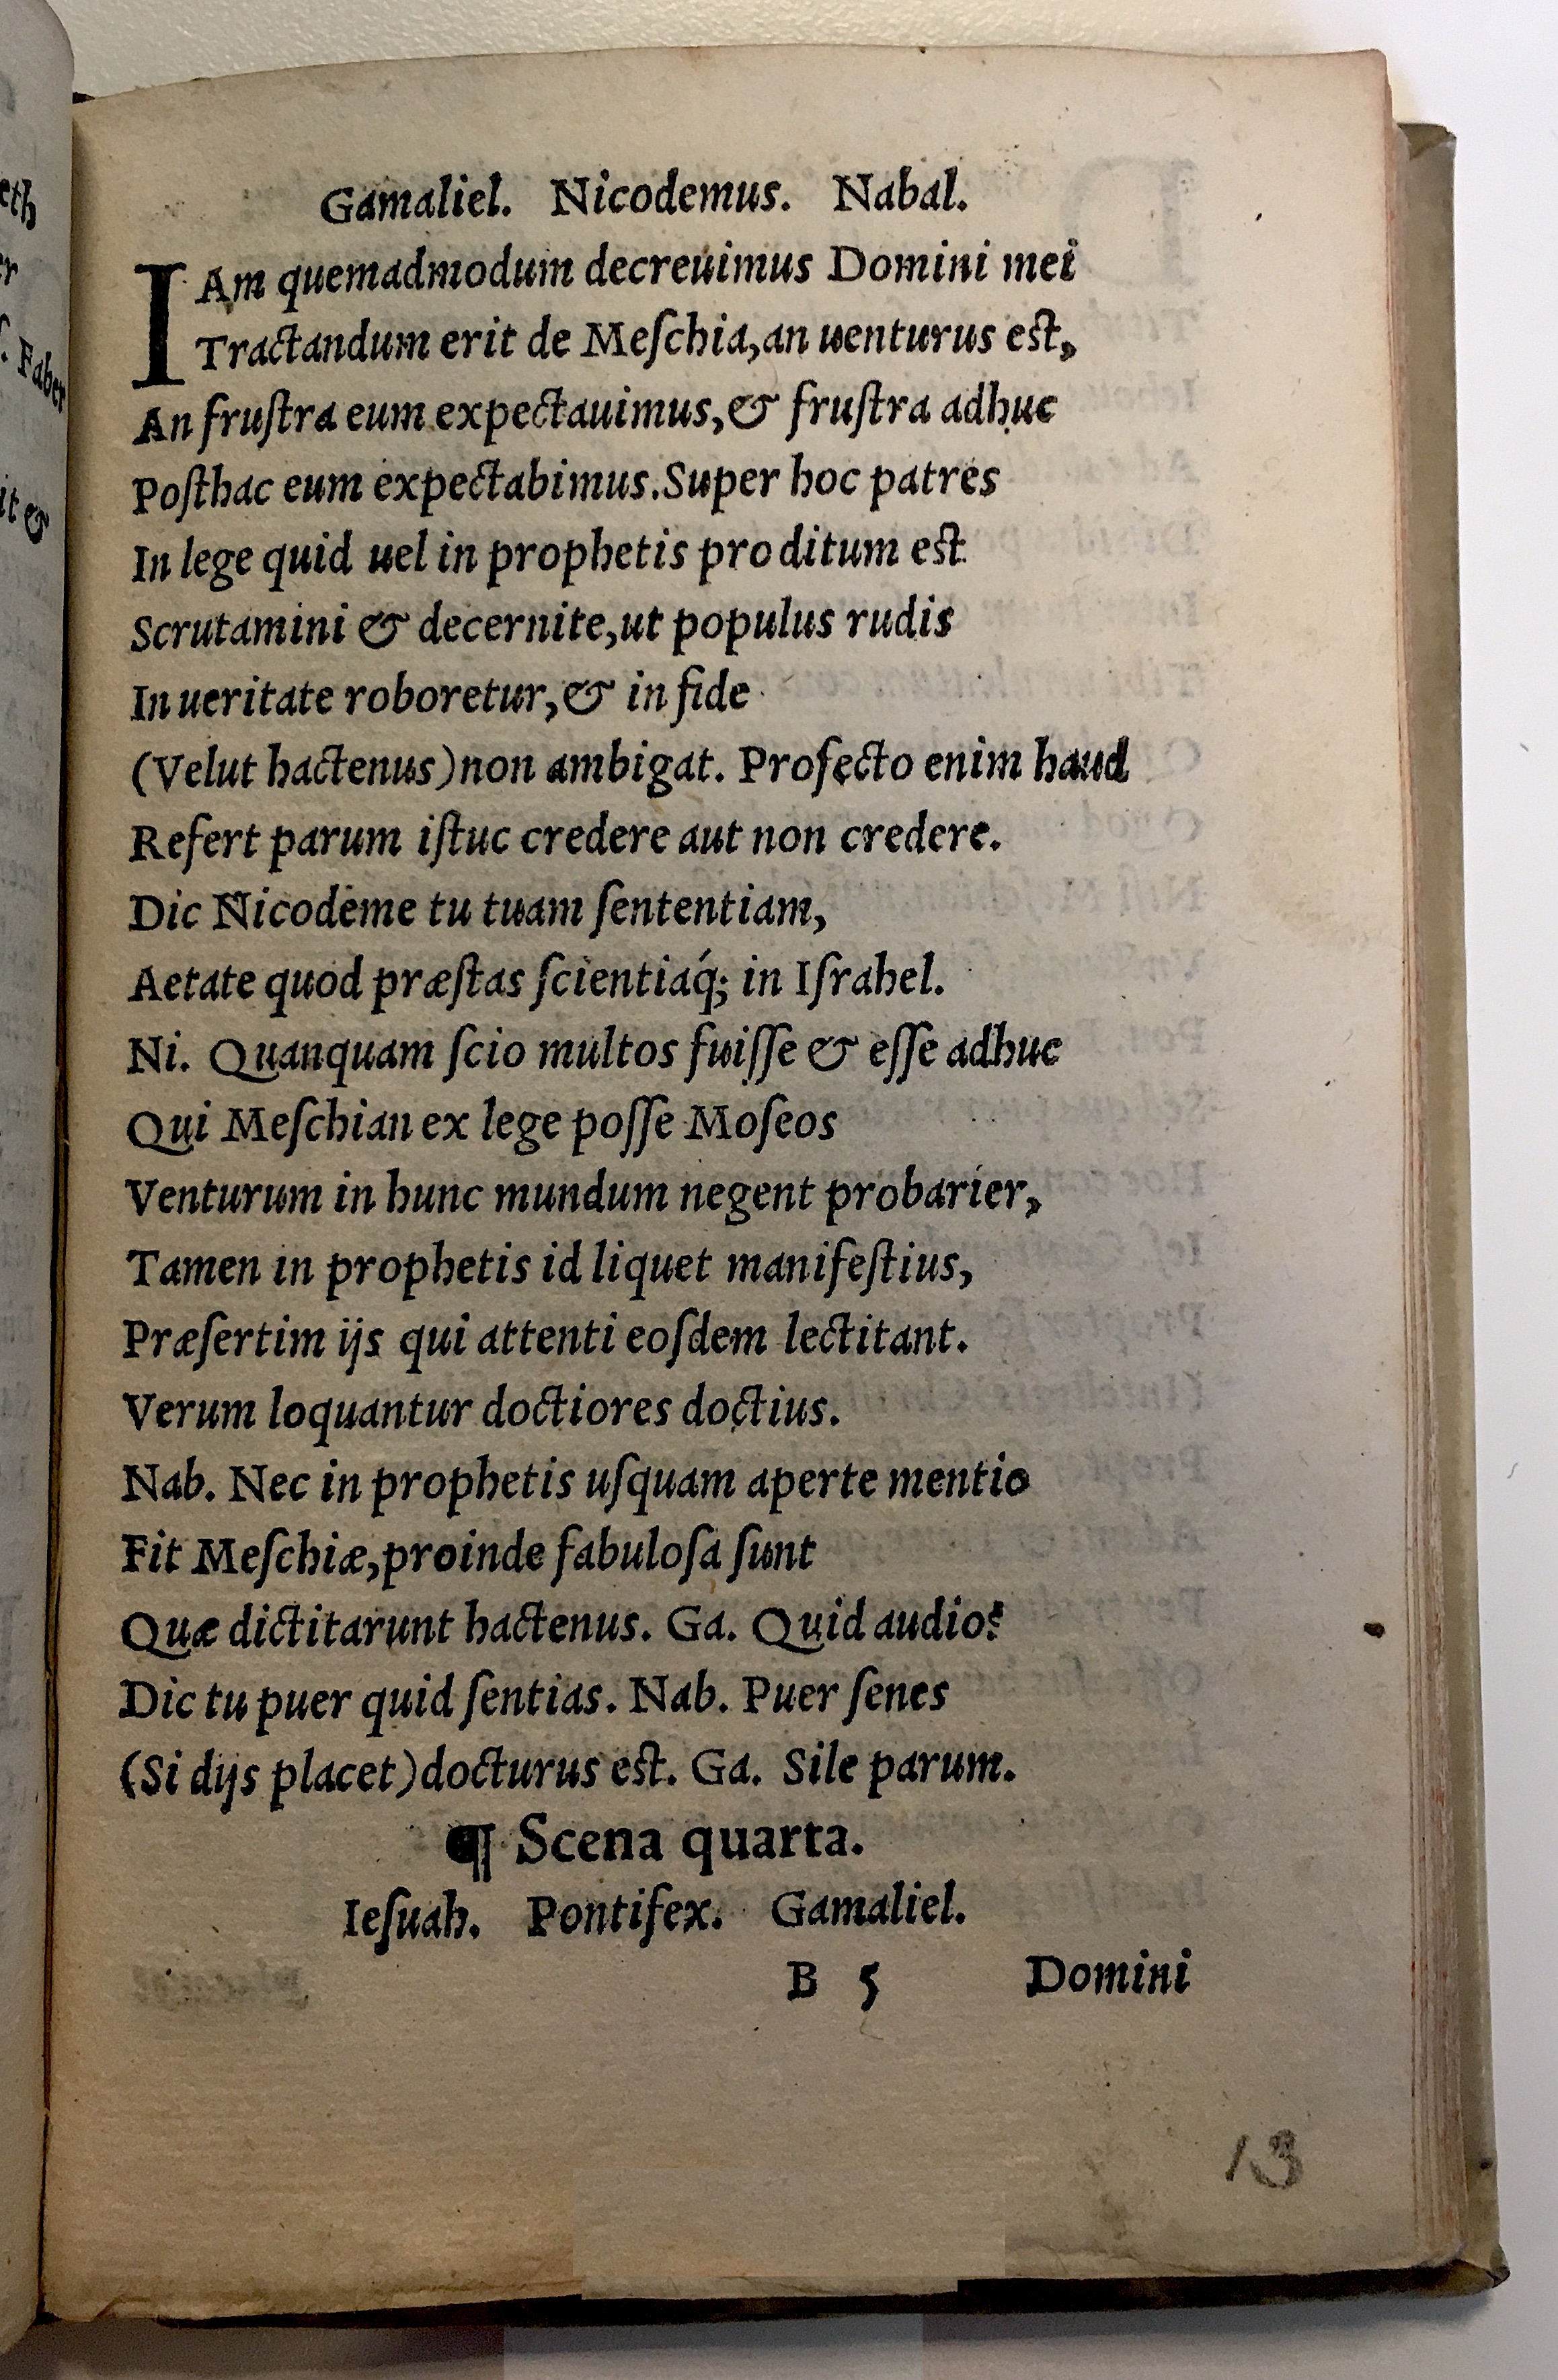 Gamaliel. Nicodemus. Nabal.
IAm quemadmodum decreuimus Domini mei
Tractandum erit de Meſchia,an uenturus eſt,
An fruſtra eum expectauimus,& fruſtra adhuc
Poſthac eum expectabimus.Super hoc patres
In lege quid uel in prophetis proditum eſt
Scrutamini & decernite,ut populus rudis
In ueritate roboretur,& in fide
(Velut hactenus)non ambigat. Profecto enim haud
Refert parum iſtuc credere aut non credere.
Dic Nicodeme tu tuam ſententiam,
Aetate quod præſtas ſcientiaq́; in Iſrahel.
Ni. Quanquam ſcio multos fuiſſe & eſſe adhuc
Qui Meſchian ex lege poſſe Moſeos
Venturum in hunc mundum negent probarier,
Tamen in prophetis id liquet manifeſtius,
Præſertim ijs qui attenti eoſdem lectitant.
Verum loquantur doctiores doctius.
Nab. Nec in prophetis uſquam aperte mentio
Fit Meſchiæ,proinde fabuloſa ſunt
Quæ dictitarunt hactenus. Ga. Quid audio?
Dic tu puer quid ſentias. Nab. Puer ſenes
(Si dijs placet)docturus eſt. Ga. Sile parum.
¶ Scena quarta.
Ieſuah. Pontifex. Gamaliel.
B 5 Domini
13
eth
er
Faber
it &